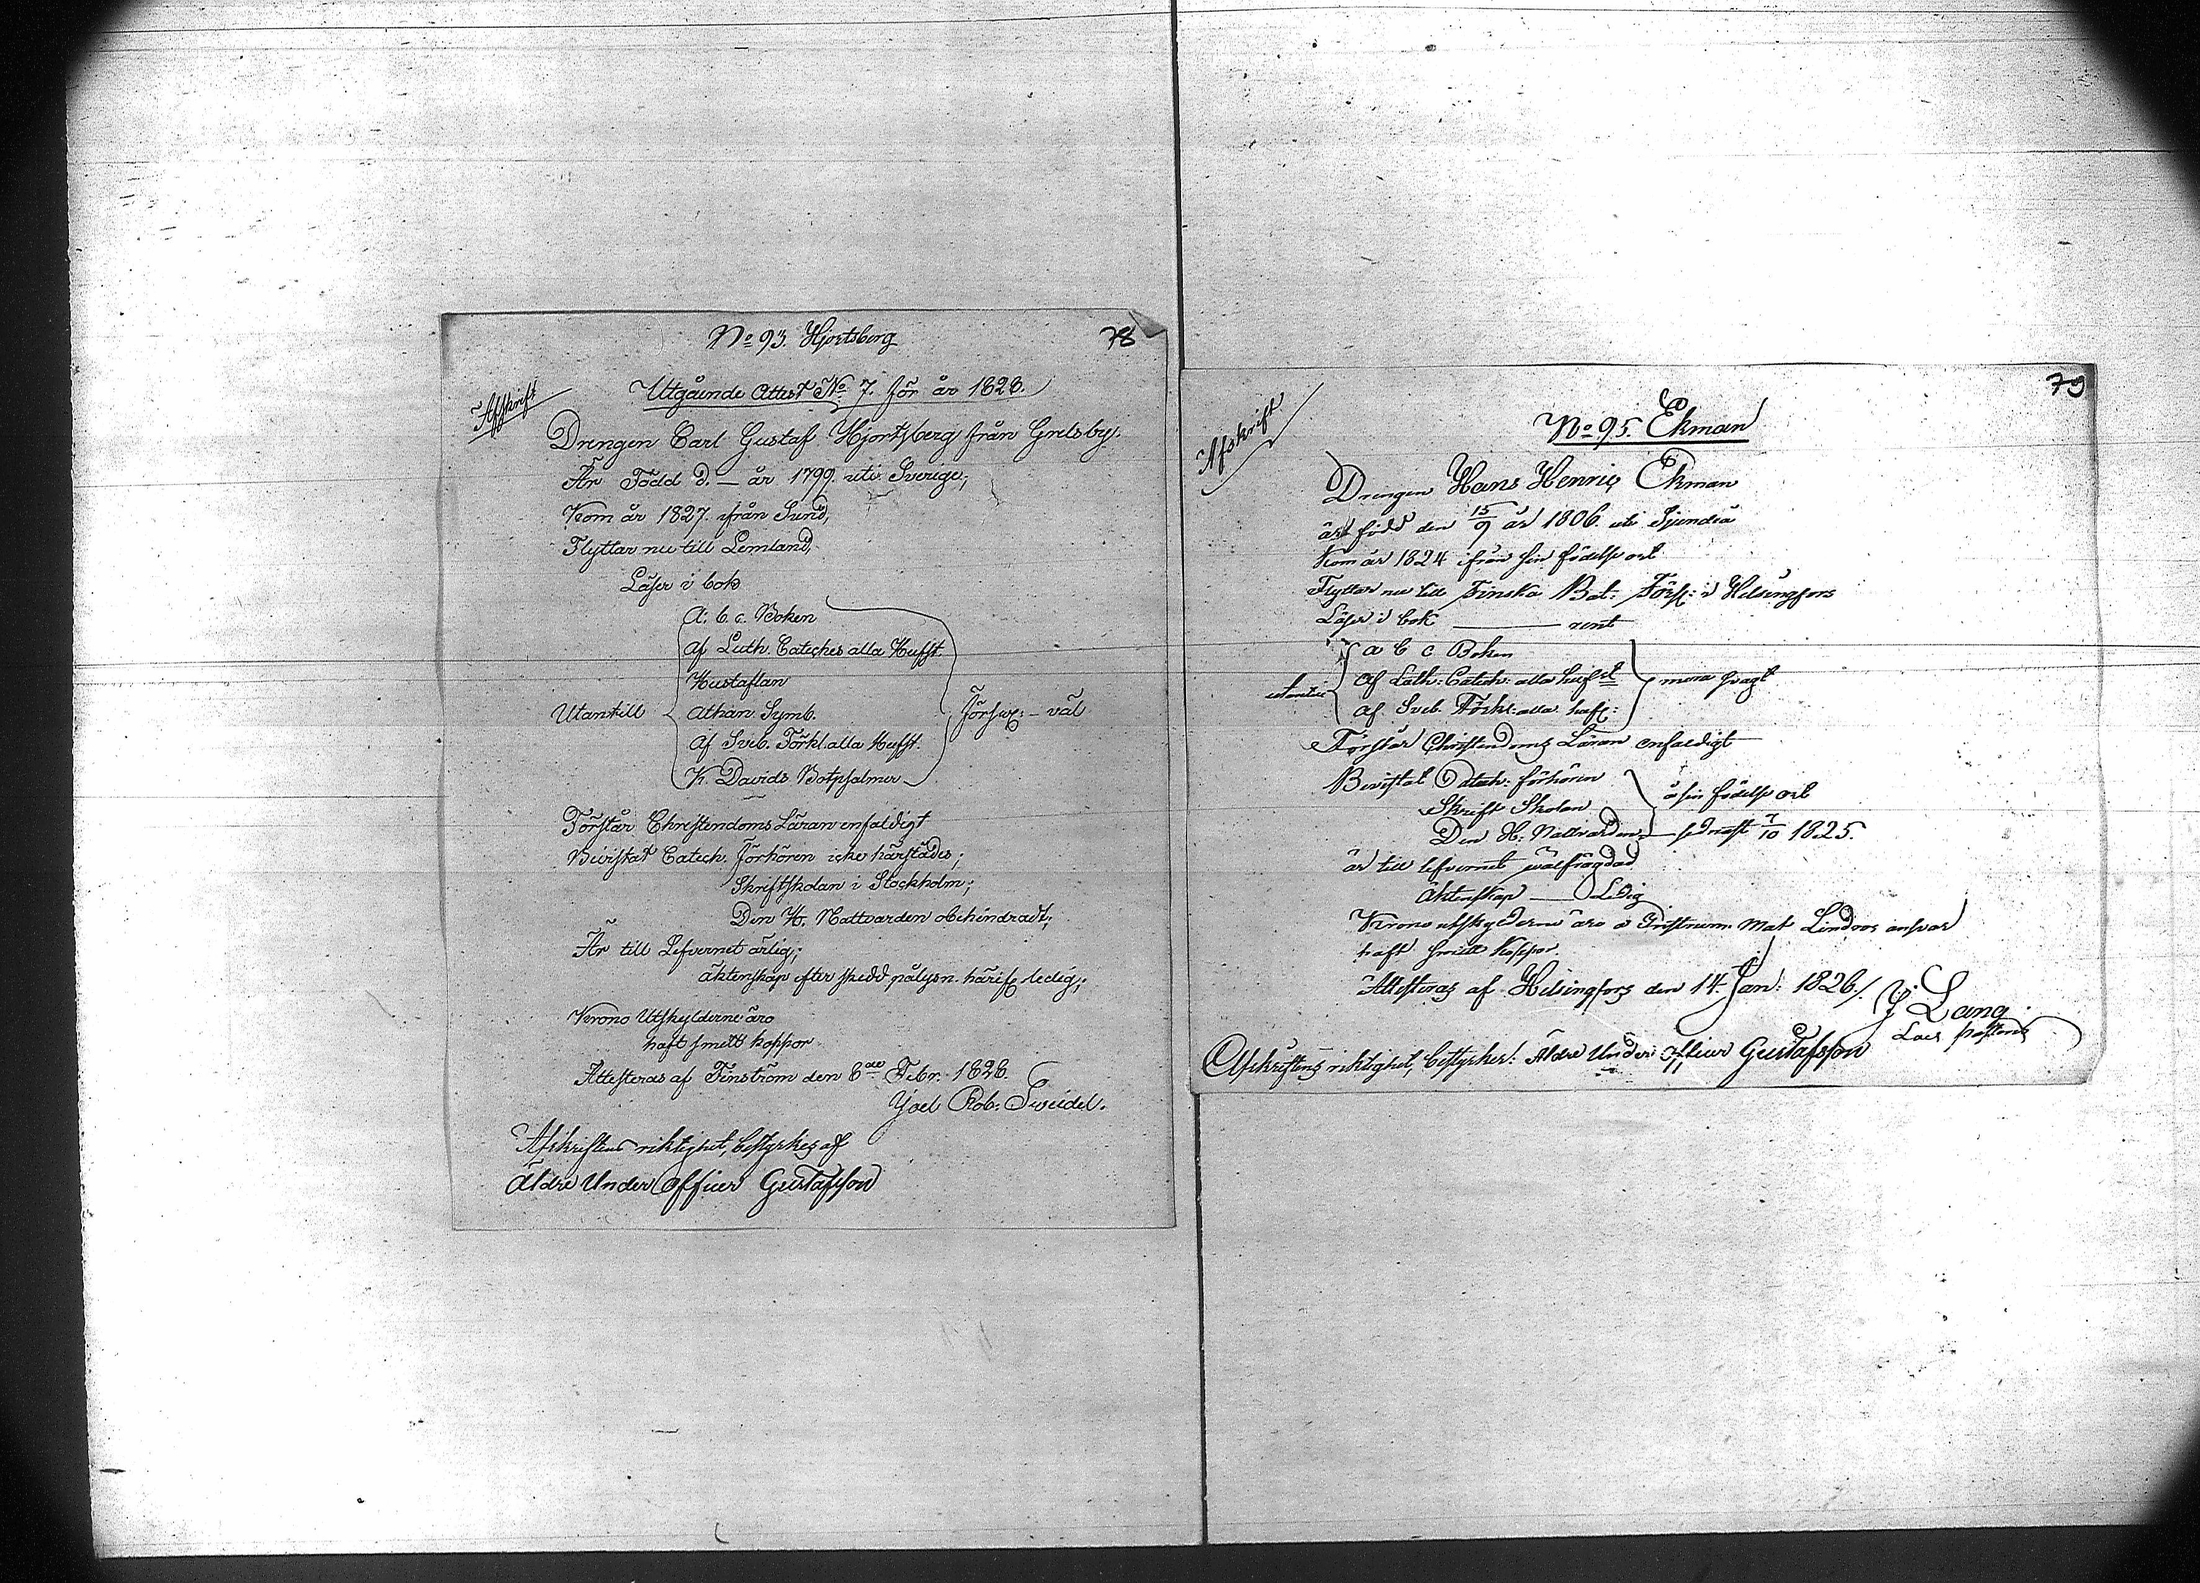 No 93. Hjortsberg
78
Afskrift
Utgående Attest No 7. för år 1828.
Drengen Carl Gustaf Hjortsberg från Grelsby.
Är Född d. — år 1799. uti Sverige;
Kom år 1827. ifrån Sund,
Flyttar nu till Lemland,
Läser i bok
A. b. c. Boken
af Luth. Cateches alla Hufst.
Hustaflan
Utantill
Athan. Symb.
försvl: – väl
af Sveb. Förkl. alla Hufst.
K Davids Botpsalmer
Förstår Christendoms Läran enfaldigt
Bevistat Catech. förhören icke härstädes;
Skriftskolan i Stockholm;
Den H. Nattvarden obehindradt;
Är till Lefvernet ärlig;
äktenskap efter skedd pålysn. härifr. ledig;
Krono Utskylderne äro
haft smitt koppor
Attesteras af Finström den 6te Febr. 1828.
Joel Rob. Sweidel.
Afskriftens riktighet, bestyrkes af
Äldre Under Officer Gustafsson
79
No 95. Ekman
Afskrift
Drengen Hans Henric Ekman
är född den 15/9 år 1806. uti Sjundeå
Kom år 1824 ifrån sin födelse ort
Flyttar nu till Finska Bat: i Helsingfors
Läser i bok — rent
a b c Boken
utantill
Af Luth: Catech: alla hufst
mera svagt
af Sveb. Förkl: alla hufs:
Förstår Christendoms Läran enfaldigt
Bevistat Catech: förhören
å sin födelse ort
Skrift Skolan
Den H: Nattvarden — sednast 7/10 1825.
är till lefvernet wälfrägdad
Äktenskap — Ledig
Krono utskylderne äro å Mat Lindroos ansvar
haft smitt Koppor
Attesteras af Helsingfors den 14 Jan: 1826/.
J Lang
Afskriftens riktighet, bestyrker: Äldre Under Officer Gustafsson